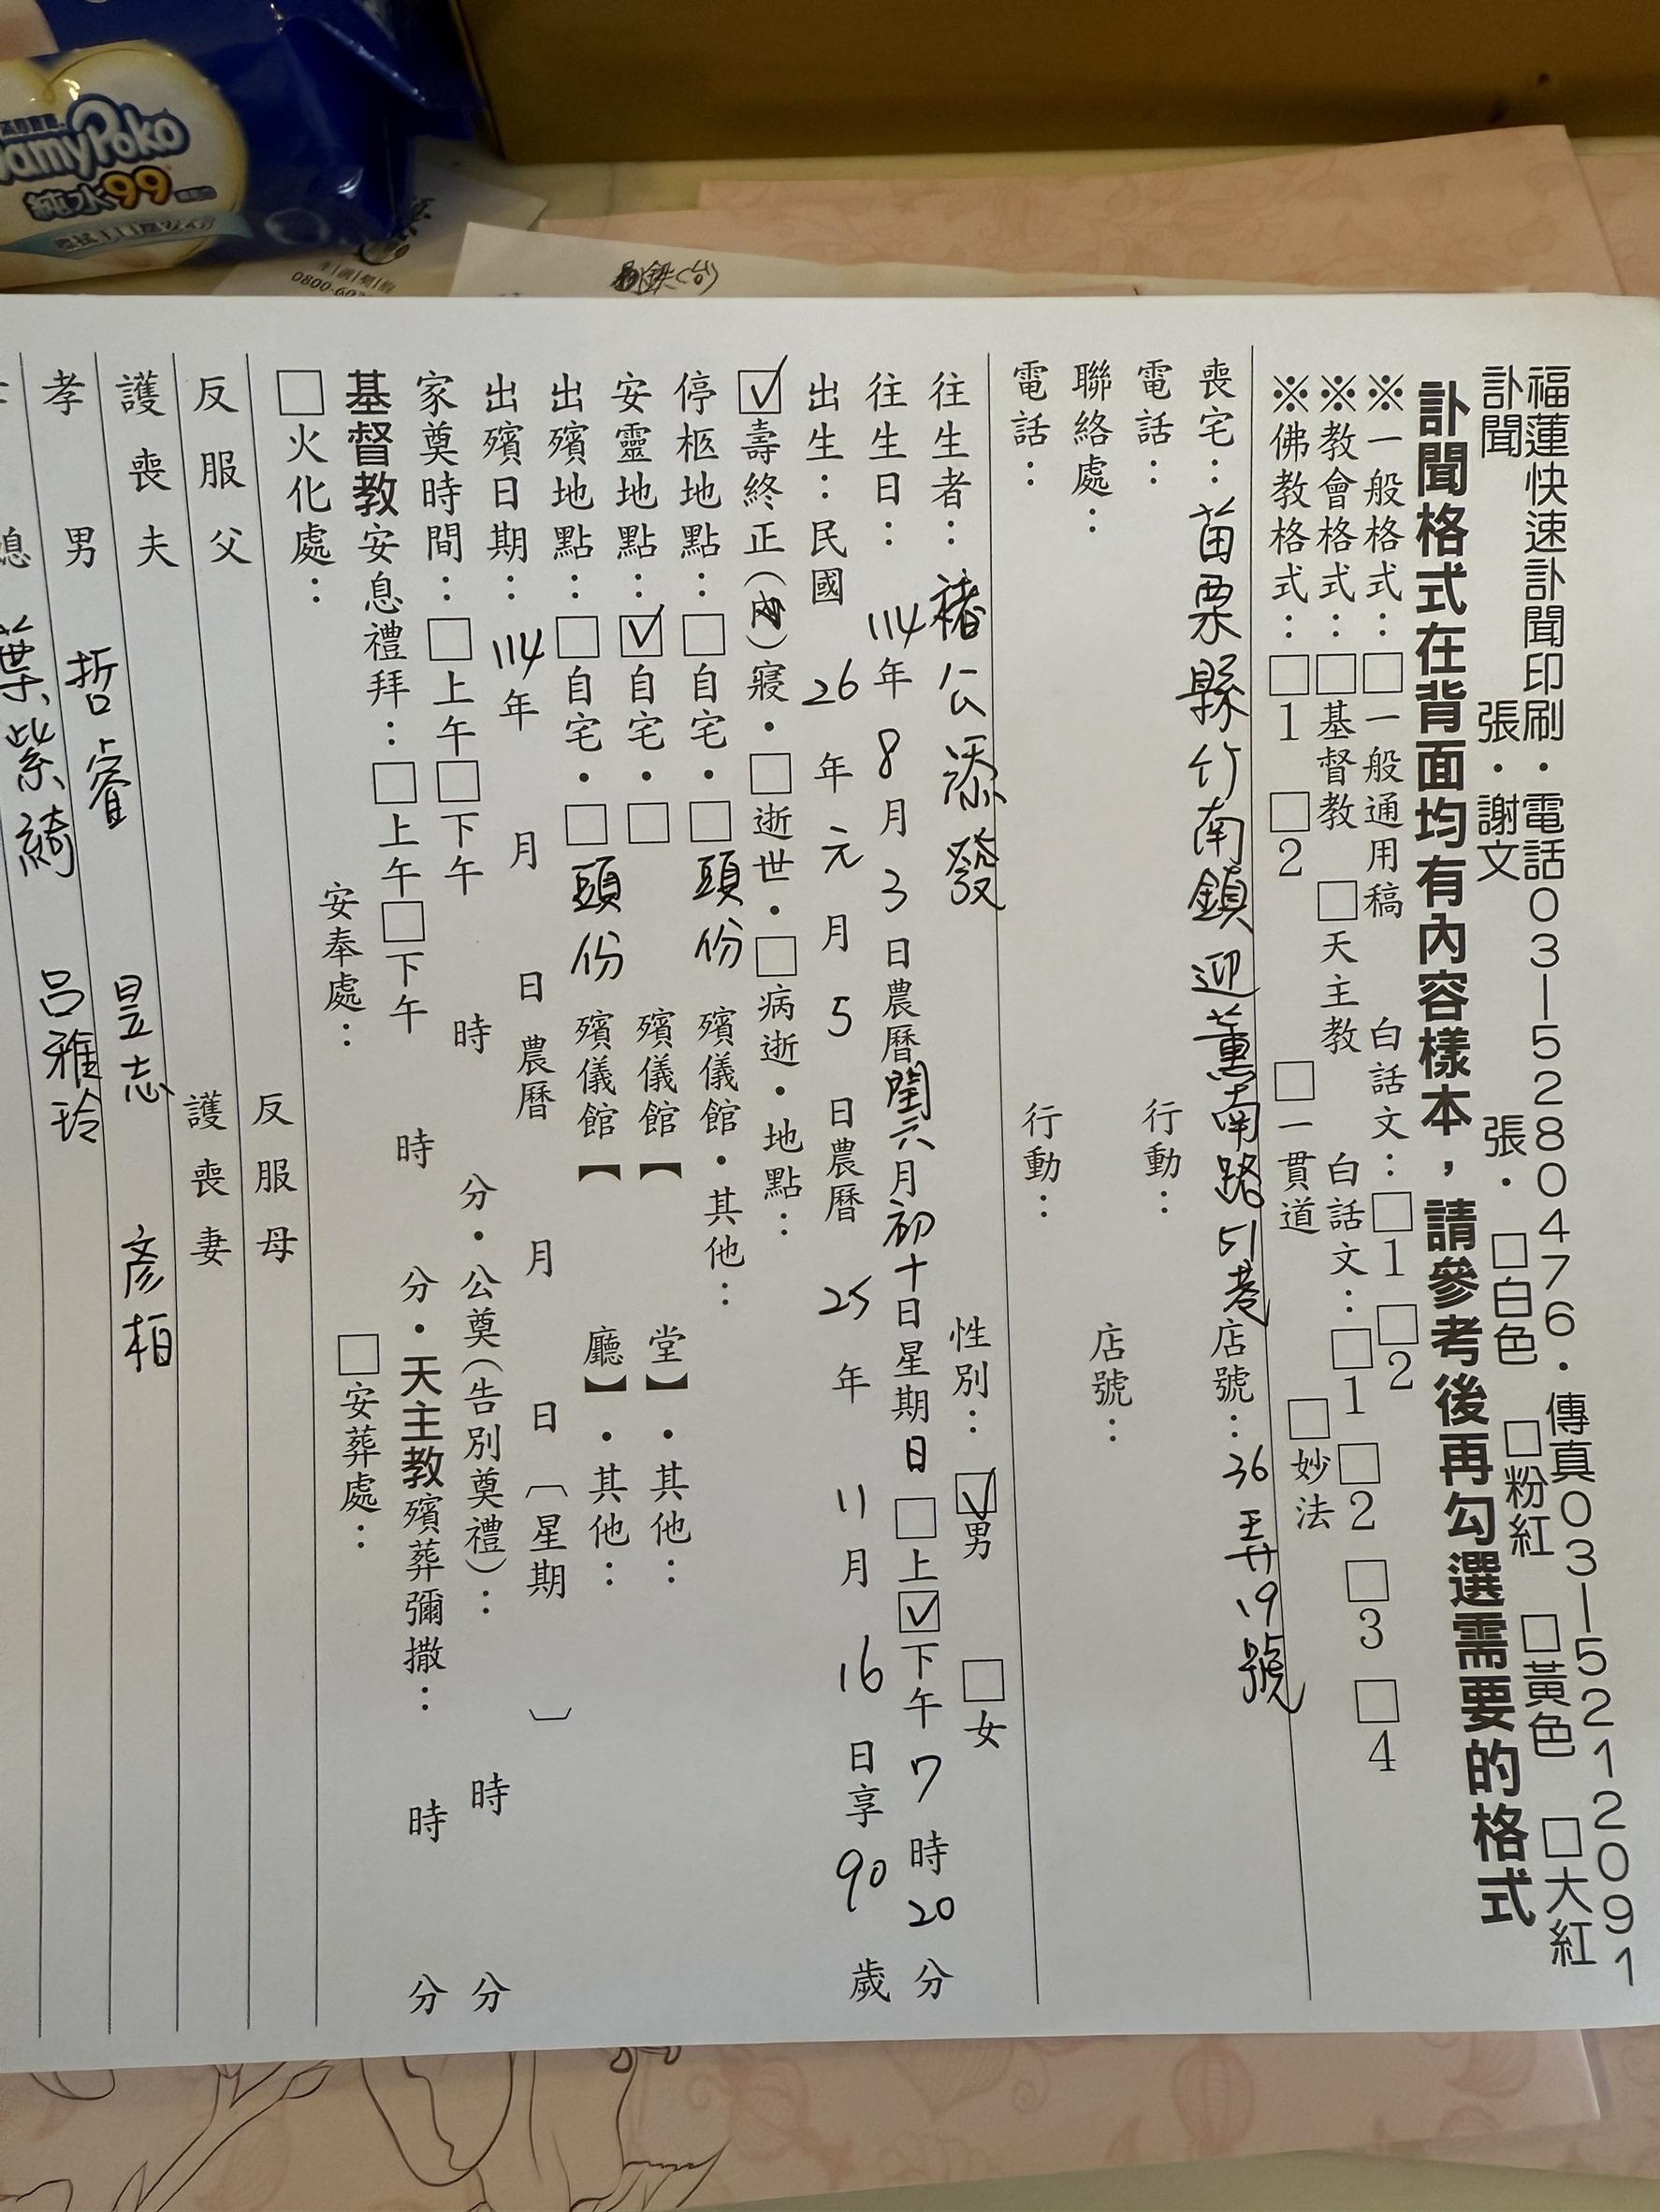 福蓮快速訃聞印刷・電話03—5280476・傳真03—5212091
訃聞 張・謝文 張・ □白色 □粉紅 □黃色 □大紅
訃聞格式在背面均有內容樣本，請參考後再勾選需要的格式
※一般格式：□一般通用稿 白話文：□1 □2 □3 □4
※教會格式：□基督教 □天主教 白話文：□1 □2
※佛教格式：□1 □2 □一貫道 □妙法
喪宅：苗栗縣竹南鎮迎薰南路51巷店號：36弄19號
電話： 行動：
聯絡處： 店號：
電話： 行動：
往生者：褚公添發 性別：☑男 □女
往生日：114年8月3日農曆閏六月初十日星期日□上☑下午7時20分
出生：民國26年元月5日農曆25年11月16日享90歲
☑壽終正(內)寢・□逝世・□病逝・地點：
停柩地點：□自宅・□頭份殯儀館・其他：
安靈地點：☑自宅・□ 殯儀館【 堂】・其他：
出殯地點：□自宅・□頭份殯儀館【 廳】・其他：
出殯日期：114年 月 日農曆 月 日〔星期 〕
家奠時間：□上午□下午 時 分・公奠(告別奠禮)： 時 分
基督教安息禮拜：□上午□下午 時 分・天主教殯葬彌撒： 時 分
□火化處： 安奉處： □安葬處：
反服父 反服母
護喪夫 護喪妻
孝男 哲睿 昱志 彥柏
媳 葉紫綺 呂雅玲
MamyPoko
純水99
0800-60